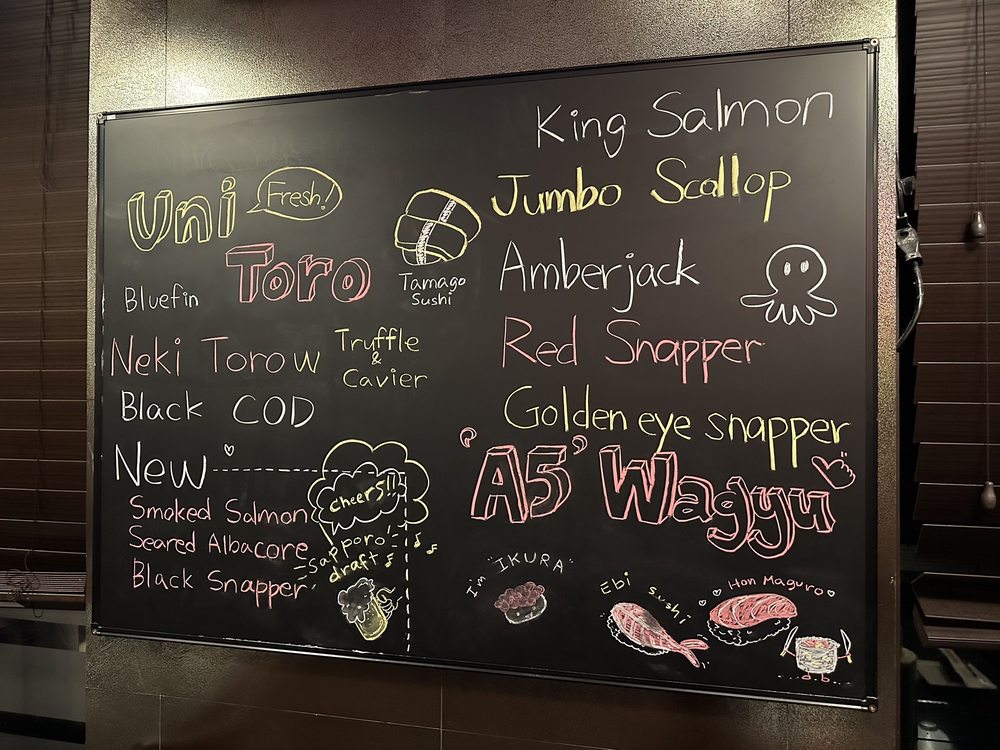 Uni
Fresh!
Bluefin Toro
Tamago
Sushi
Neki Toro w Truffle
&
Cavier
Black COD
New
Smoked Salmon
Seared Albacore
Black Snapper
cheers!!
Sapporo
draft
King Salmon
Jumbo Scallop
Amberjack
Red Snapper
Golden eye snapper
'A5' Wagyu
I'm "IKURA"
Ebi sushi
Hon Maguro